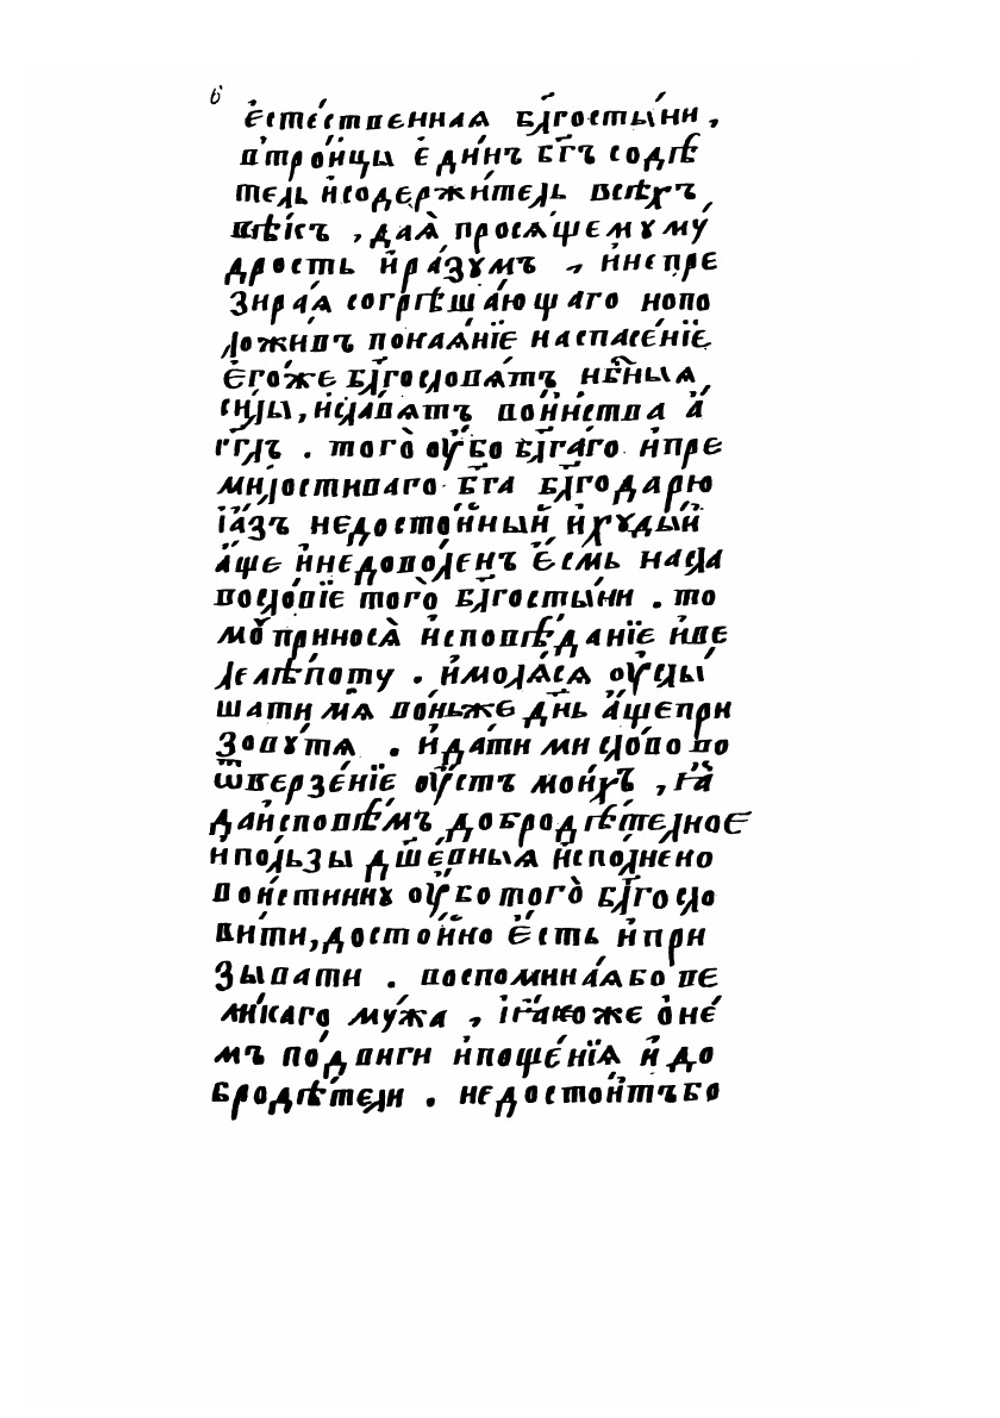 6
є҆сте́ственная бл҃госты́ни,
в҆тро́ицы є҆ди́нъ бг҃ъ содѣ́
тель и҆содержи́тель всѣ́хъ
вѣ́къ, дая̀ прося́щемꙋ мꙋ́
дрость и҆ра́зꙋмъ, и҆непре
зира́ѧ согрѣша́ющаго нопо
ложи́въ покаѧ́нїе наспасе́нїе
є҆го́же бл҃гословѧ́тъ нб҃ныѧ
си́лы, и҆сла́вѧтъ во́инства а҆́
гг҃лъ. того̀ ᲂу҆́бо бл҃га́го и҆пре
ми́лостиваго бг҃а бл҃года́рю
і҆а҆́зъ недосто́йный и҆хꙋды́й
а҆́ще и҆недово́ленъ є҆́смь насла
восло́вїе того̀ бл҃госты́ни. то
мꙋ̀ приносѧ̀ и҆сповѣ́данїе и҆ве
лелѣ́потꙋ. и҆молѧ́сѧ ᲂу҆слы́
шати мѧ̀ во́ньже дн҃ь а҆́ще при
зовꙋ́тѧ. и҆да́ти ми сло́во во
ѿверзе́нїе ᲂу҆́стъ мои́хъ, ꙗ҆̀
даи҆сповѣ́мъ добродѣ́телное
и҆по́льзы дш҃е́вныѧ и҆спо́лнено
вои́стиннꙋ ᲂу҆́бо того̀ бл҃госло
ви́ти, досто́йно є҆́сть и҆при
зывати. воспомина́ѧбо ве
ли́каго мꙋ́жа, ꙗ҆́коже ѻ҆не́
мъ по́двиги и҆поще́нїѧ и҆ до
бродѣ́тели. недостои́тъбо